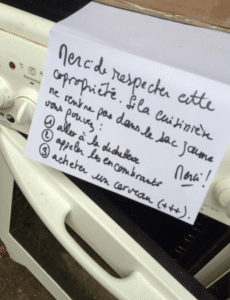 Merci de respecter cette
copropriété. Si la cuisinière
ne rentre pas dans le sac jaune
vous pouvez :
① aller à la déchetterie
② appeler les encombrants
③ acheter un cerveau (+++).
Merci!